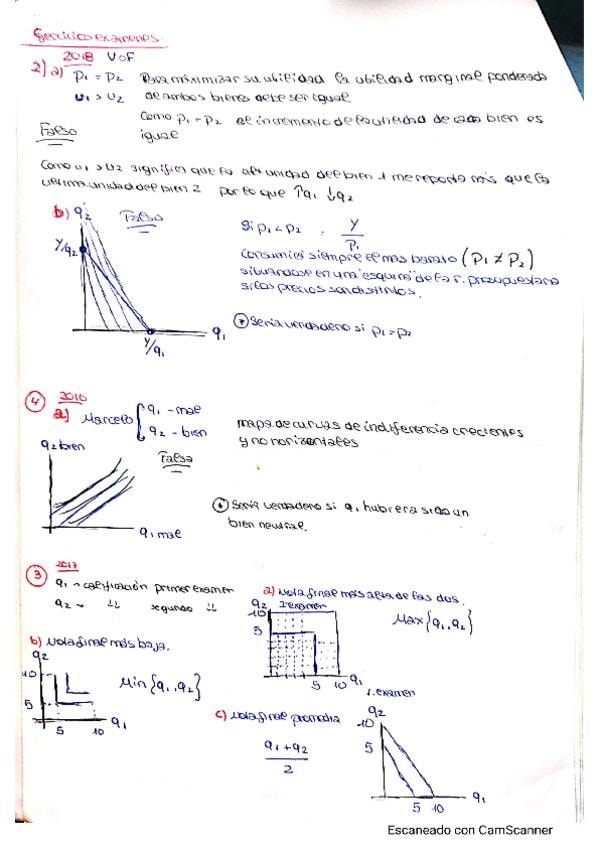 Ejercicios examenes.
2018 VoF
2) a) P1 = P2 Para maximizar su utilidad la utilidad marginal ponderada
u1 > u2 de ambos bienes debe ser igual.
Como P1 = P2 el incremento de la utilidad de cada bien es
Falso igual
Como u1 > u2 significa que la ult unidad del bien 1 me reporta más que la
ultima unidad del bien 2 por lo que ↑q1 ↓q2
b) q2 Falso
Si P1 < P2 Y/P1
Y/q2
Consumirá siempre el más barato (P1 ≠ P2)
situandose en una esquina de la r. presupuestaria
si los precios son distintos.
q1
Y/q1
* Sería verdadero si P1 = P2
4 2016
a) Marcelo { q1 - mal
q2 - bien
mapa de curvas de indiferencia crecientes
y no horizontales
q2 bien Falsa
* Sería verdadero si q1 hubiera sido un
bien neutral.
q1 mal
3 2017
q1 → calificación primer examen
q2 → " segundo "
a) Nota final más alta de las dos.
q2
10
5
Max{q1, q2}
5 10 q1
1. examen
b) Nota final más baja.
q2
10
5
Min{q1, q2}
5 10 q1
c) Nota final promedia
q1 + q2
2
q2
10
5
5 10 q1
Escaneado con CamScanner